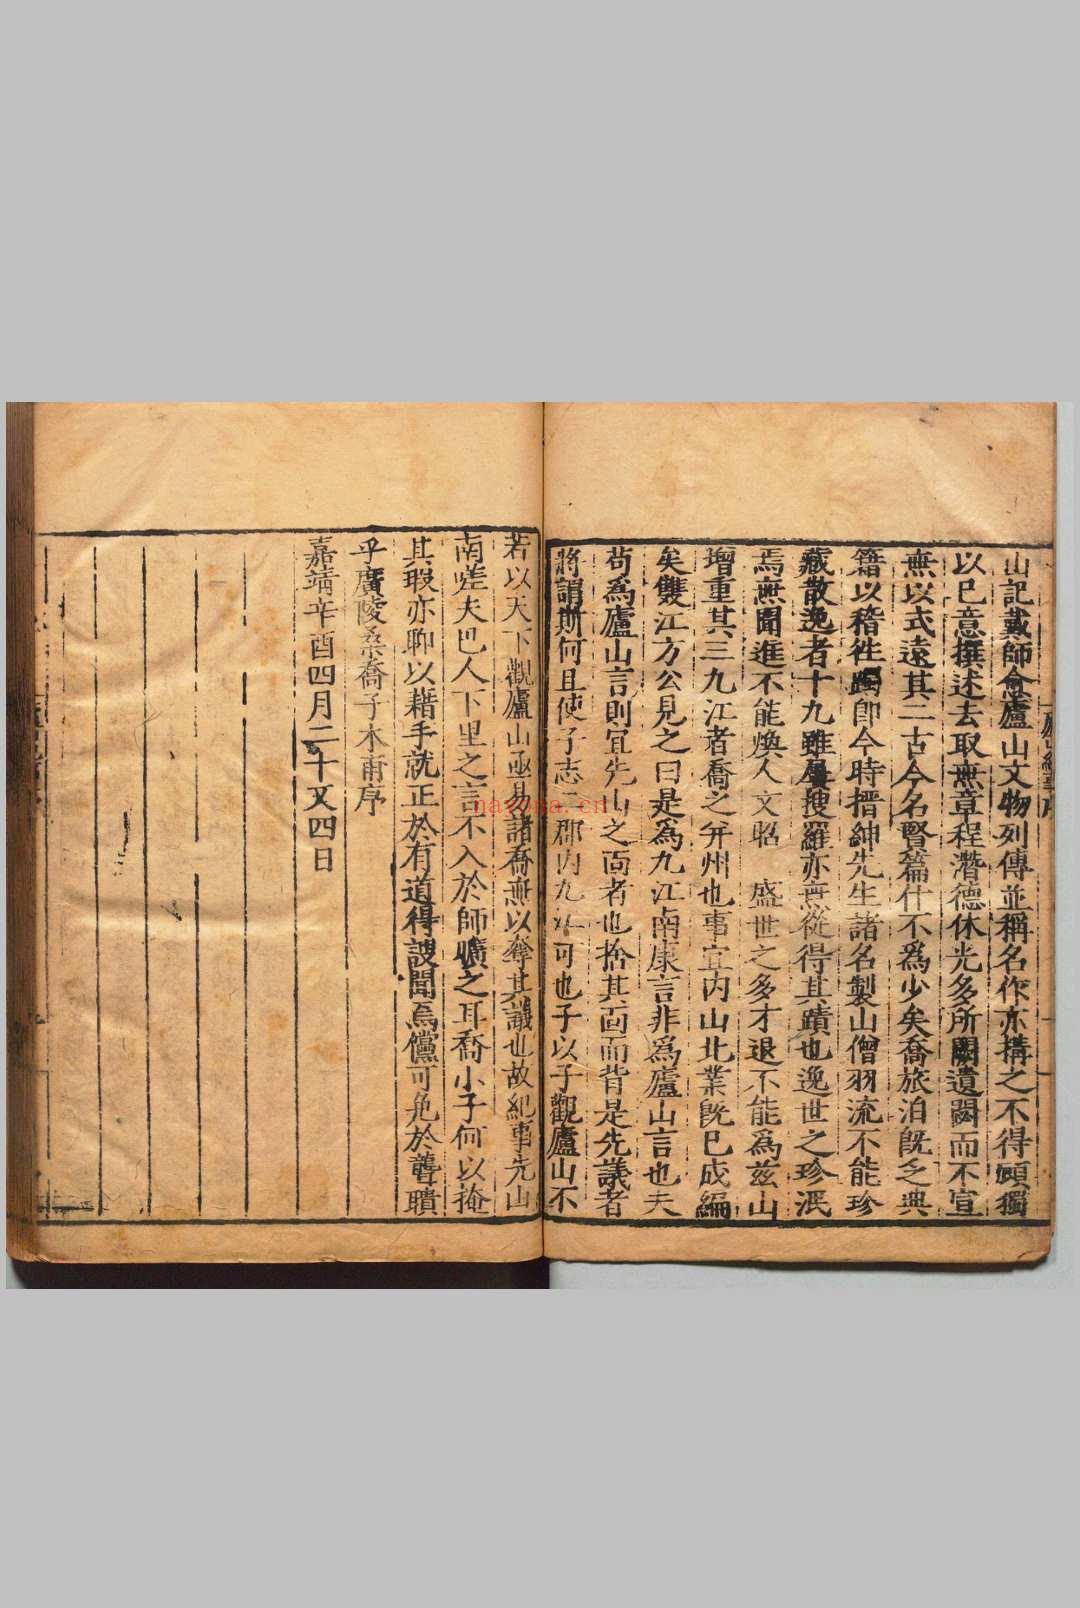 山記戴師愈廬山文物列傳並稱名作亦搆之不得顧獨
以己意撰述去取無章程潛德休光多所闕遺闕而不宣
無以式遠其二古今名賢篇什不爲少矣喬旅泊旣乏典
籍以稽徃躅卽今時搢紳先生諸名製山僧羽流不能珍
藏散逸者十九雖屢搜羅亦無從得其蹟也逸世之珍泯
焉無聞進不能煥人文昭 盛世之多才退不能爲茲山
增重其三九江者喬之幷州也事宜內山北業旣已成編
矣雙江方公見之曰是爲九江南康言非爲廬山言也夫
苟爲廬山言則宜先山之面者也捨其面而背是先議者
將謂斯何且使子志二郡內九江可也子以子觀廬山不
若以天下觀廬山亟易諸喬無以奪其議也故紀事先山
南嗟夫巴人下里之言不入於師曠之耳喬小子何以掩
其瑕亦聊以藉手就正於有道得謏聞焉儻可免於聾聵
乎廣陵桑喬子木甫序
嘉靖辛酉四月二十又四日
廬山紀事序
navona.cn